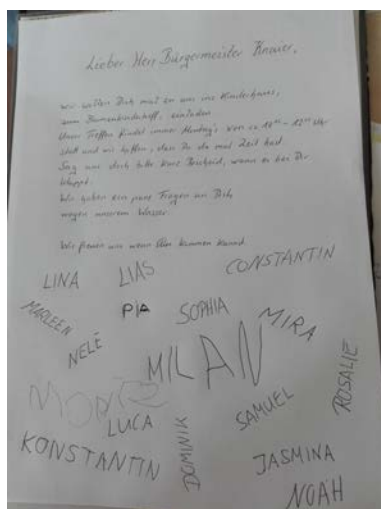 Lieber Herr Bürgermeister
wir wollen Dich mal zu uns ins Kinderhaus,
zum einladen
Unser Treffen findet immer Montag's von ca Uhr
statt und wir hoffen, dass Du da mal Zeit hast
Sag uns doch bitte kurz Bescheid, wann es bei Dir
klappt.
Wir haben ein paar Fragen an Dich,
wegen unserem Wasser.
Wir freuen uns wenn Du kommen kannst
LINA
LIAS
CONSTANTIN
MARLEEN
PIA
SOPHIA
MIRA
NELE
MILAN
MORITZ
LUCA
SAMUEL
ROSALIE
KONSTANTIN
DOMINIK
JASMINA
NOAH